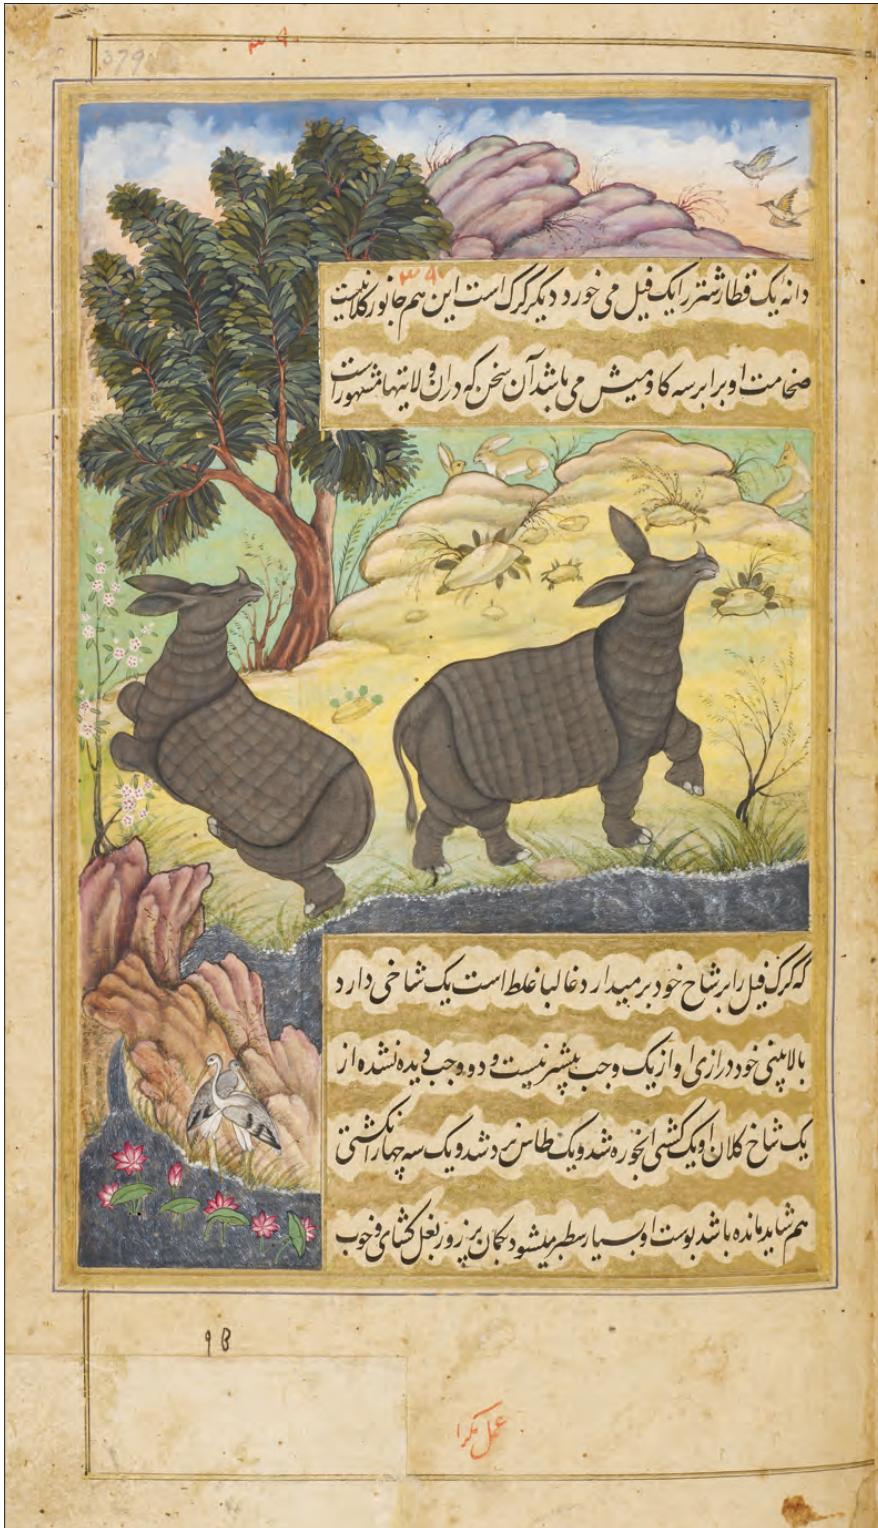 379
۳۹۰
۳۹۰
دانه یک قطار شتر را یک فیل می خورد دیگر کرک است این هم جانور کلانیست
ضخامت او برابر سه کاومیش می باشد آن سخن که در ان ولایتها مشهور است
که کرک فیل را بر شاخ خود بر میدارد غالبا غلط است یک شاخی دارد
بالا بینی خود درازی او از یک وجب بیشتر نیست و دو وجب دیده نشده از
یک شاخ کلان او یک کشتی ابخوره شد و یک طاس نرد شد و یک سه چهار انکشتی
هم شاید مانده باشد پوست او بسیار سطبر میشود بکمان پر زور بغل کشای و خوب
9B
عمل مکرا